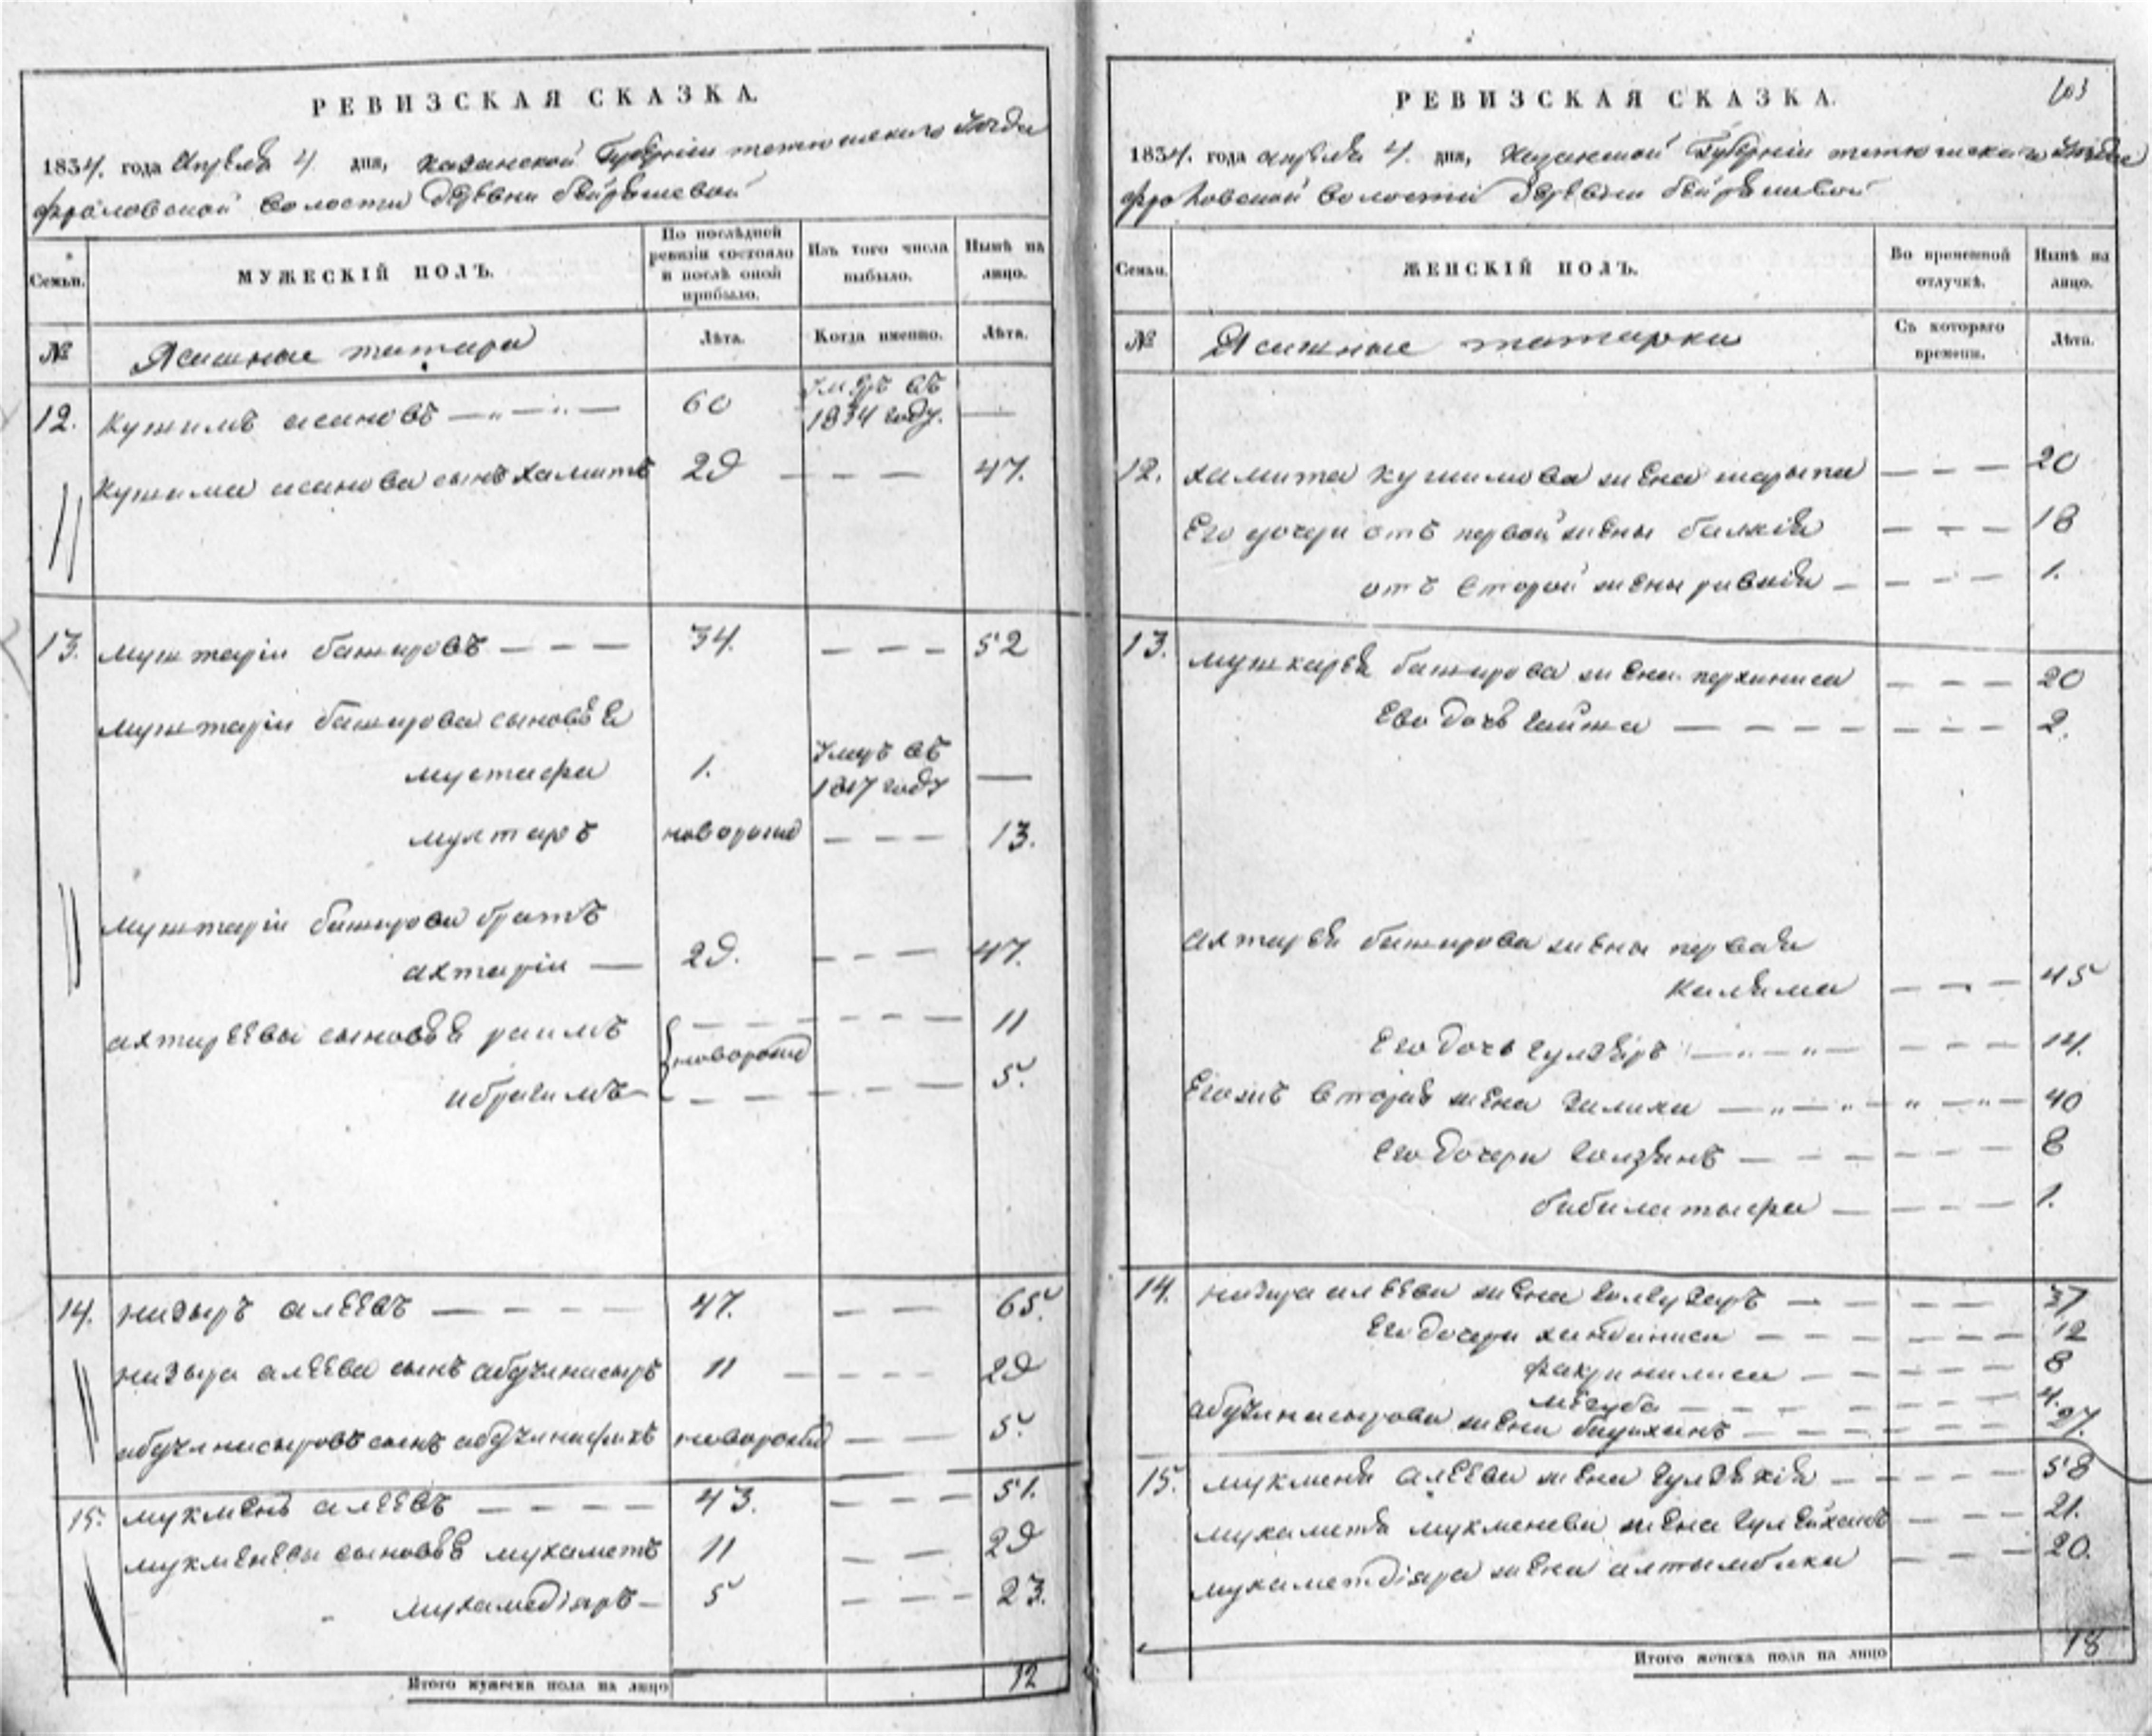 РЕВИЗСКАЯ СКАЗКА.
1834. года Апреля 4. дня, Казанской Губерніи тетюшскаго Уезда
фроловской волости деревни бейрашевой
Семьи.
МУЖЕСКІЙ ПОЛЪ.
По послѣдней ревизіи состояло и послѣ оной прибыло.
Изъ того числа выбыло.
Нынѣ на лицо.
№
Ясашные татара
Лѣта.
Когда именно.
Лѣта.
12. Кутимъ асановъ 60 умеръ въ 1834 году.
Кутима асанова сынъ хамитъ 29 47.
13. муштаріи баширов​ъ 34. 52
муштаріи баширова сыновья
мустафа 1. умеръ въ 1817 году
мухтаръ новорожд 13.
муштаріи баширова братъ
ахтаріи 29. 47.
ахтареевы сыновья раимъ новорожд 11
ибрагимъ 5.
14. назыръ алеевъ 47. 65.
назыра алеева сынъ абдулнасыръ 11 29
абдулнасыровъ сынъ абдулнафихъ новорожд 5.
15. мукмень алеевъ 43. 51.
мукменевы сыновья мухаметъ 11 29
мухамедіяръ 5 23.
Итого мужеска пола на лицо 12
103
РЕВИЗСКАЯ СКАЗКА.
1834. года апреля 4. дня, Казанской Губерніи тетюшскаго Уезда
фроловской волости деревни бейрашевой
Семьи.
ЖЕНСКІЙ ПОЛЪ.
Во временной отлучкѣ.
Нынѣ на лицо.
№
Ясашные татарки
Съ котораго времени.
Лѣта.
12. хамита Кутимова жена шарыпа 20
Его дочери отъ первой жены балкія 18
отъ второй жены равкія 1.
13. баширова жена 20
Ево дочь 2.
ахтарея баширова жена первая
Каляма 45
Его дочь гулзяръ 14.
Егожъ вторая жена Залика 40
Его дочери 8
бибилатыфа 1.
14. назыра алеева жена 37
Его дочери 12
8
4.
абдулнасырова жена 27.
15. мукменя алеева жена 58
мухаметя мукменева жена 21.
мухаметдіяра жена алтымбика 20.
Итого женска пола на лицо 18